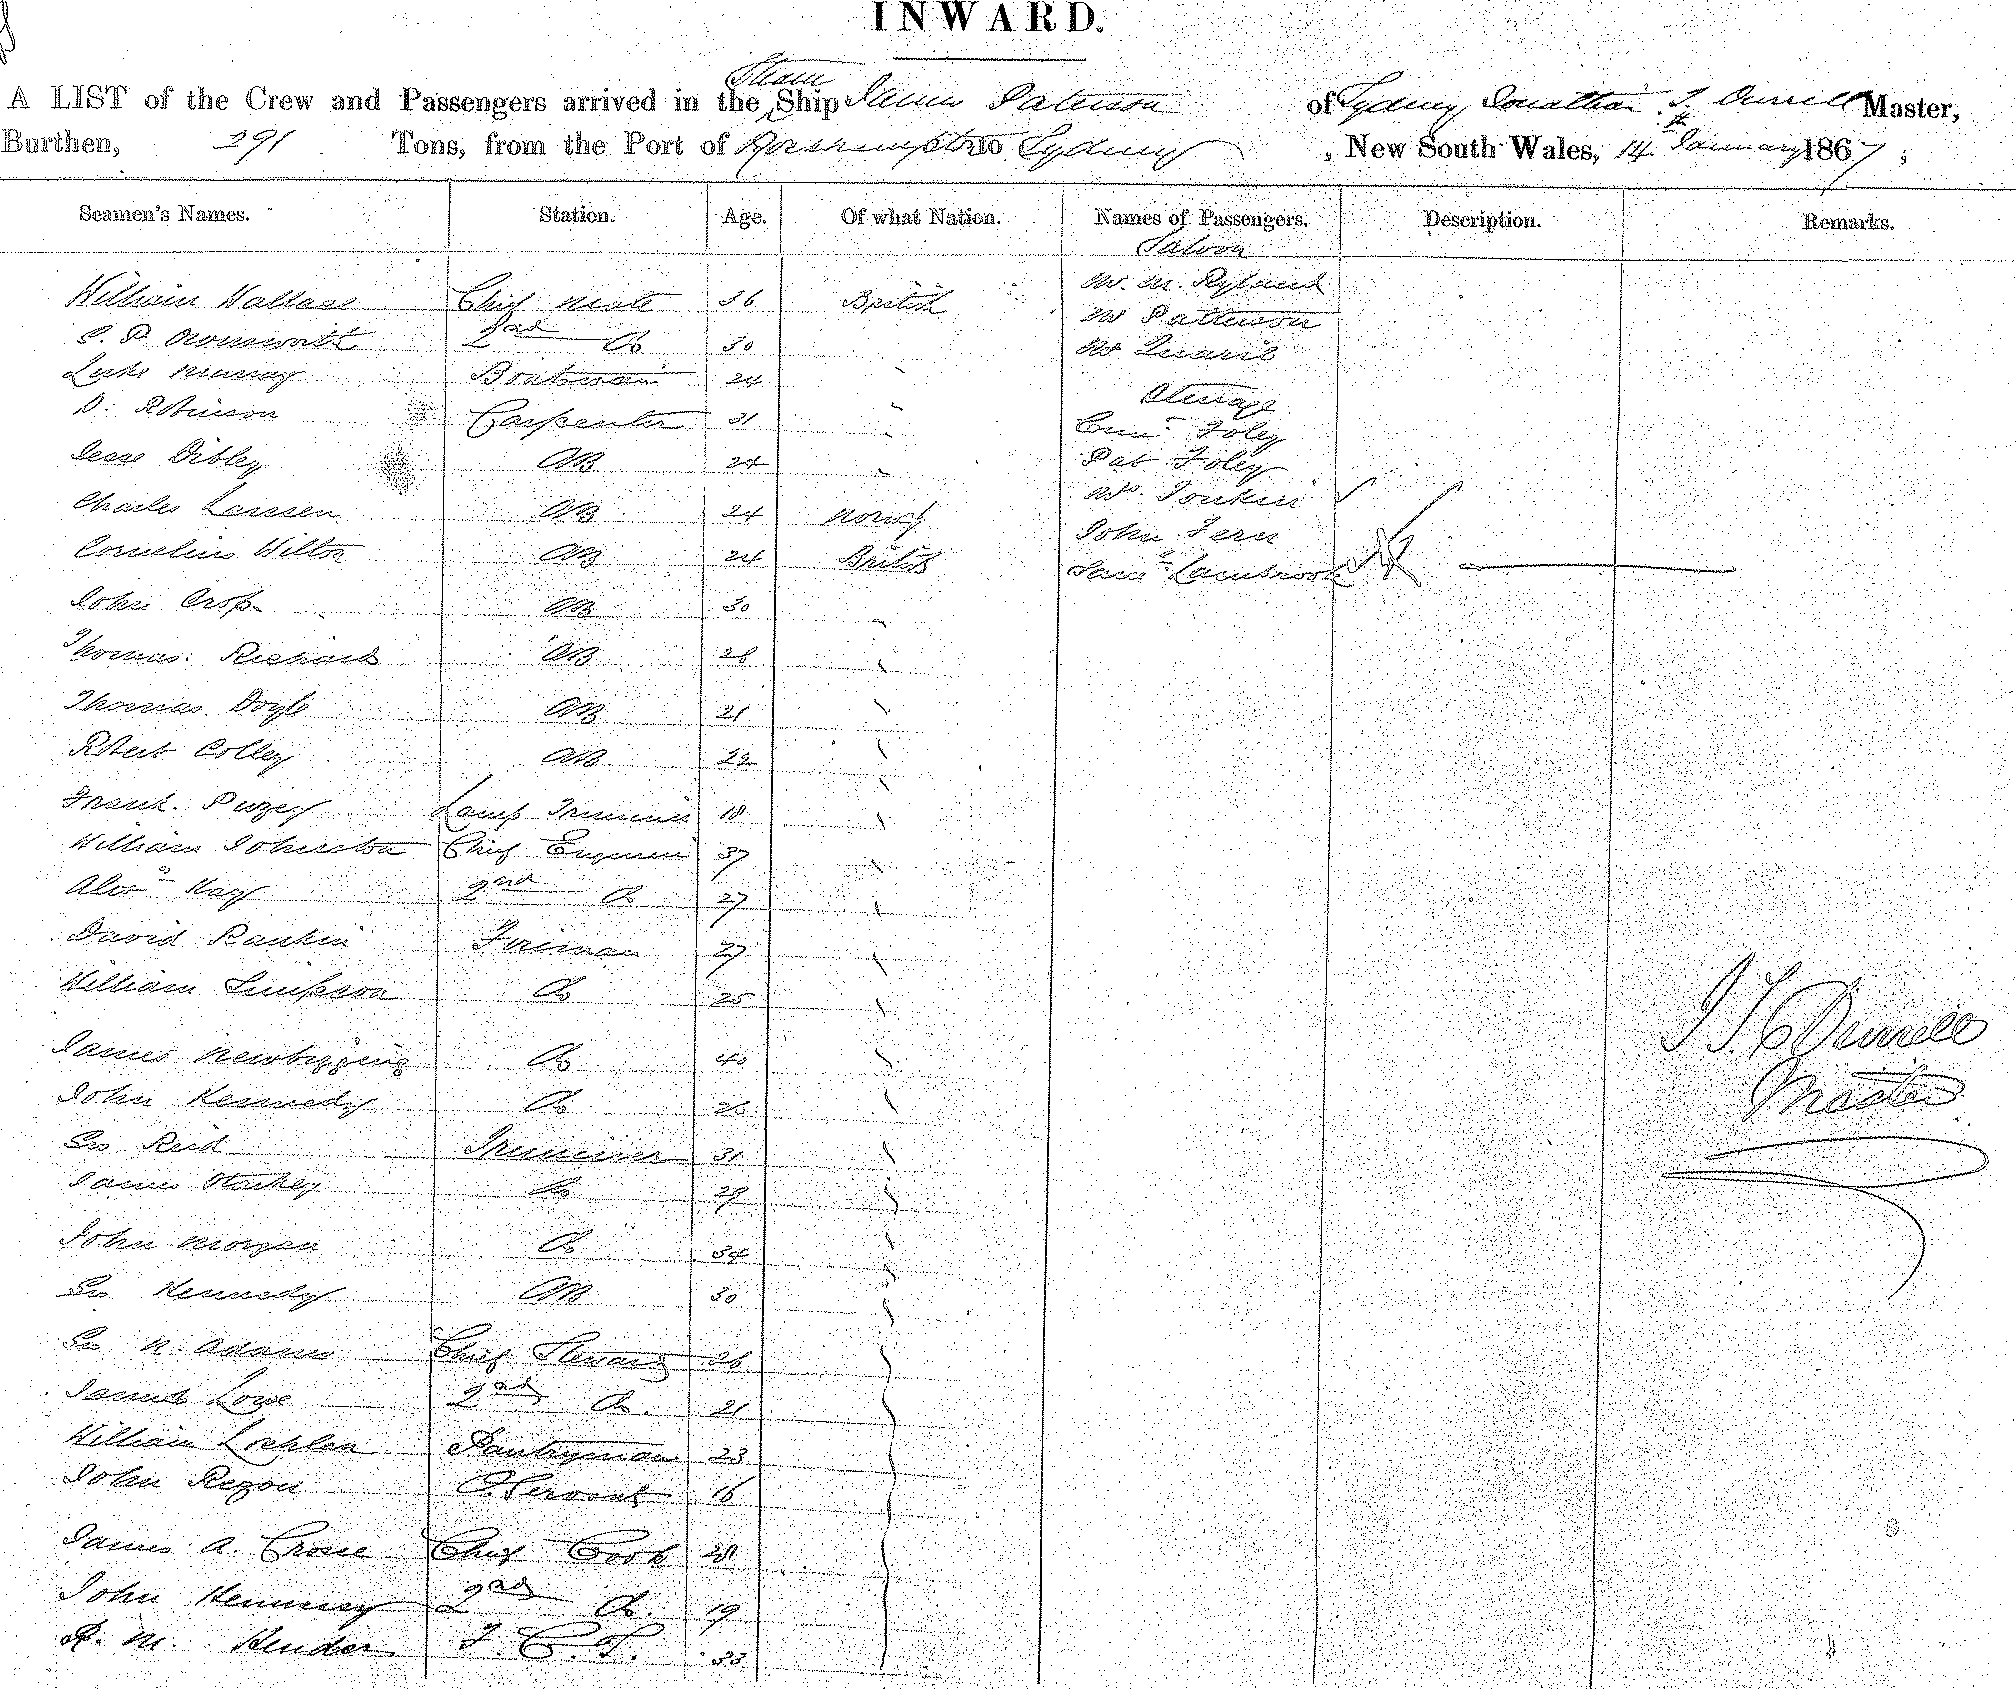 INWARD.
A LIST of the Crew and Passengers arrived in the Steam Ship James Paterson of Sydney, Jonathan S. Master,
Burthen, 291 Tons, from the Port of to Sydney, New South Wales, 14th January 1867,
Seamen's Names. Station. Age. Of what Nation. Names of Passengers. Description. Remarks.
Saloon
William Wallace Chief Mate 36 British Mr. M. Ryland
2nd Do 30 Mr Patterson
Luke Murray Boatswain 24 Mr
D. Robinson Carpenter 31 Steerage
Foley
Dibley AB 24 Pat Foley
Charles Lanssen AB 24 Norway
Cornelius Hilton AB 24 British John Fern
John AB 30 Saml Lambrook
Thomas Richards AB 28
Thomas Doyle AB 21
Robert Colley AB 22
Frank Puzey Lamp Trimmer 18
William Johnston Chief Engineer 37
Alexr Kay 2nd Do 27
David Rankin Fireman 27
William Simpson Do 25
James Newbigging Do 40
John Kennedy Do 26
Geo Reid Trimmer 31
James Starkey Do 29
John Morgan Do 34
Geo Kennedy AB 30
Geo N. Adams Chief Steward 26
James Lowe 2nd Do. 21
William Pantryman 23
John 16
James A. Crone Chief Cook 28
John 2nd Do. 19
M. 33
Master